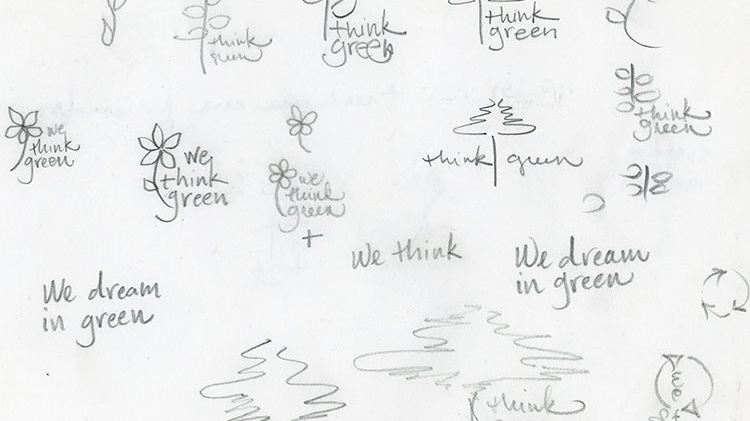 think
green
think
green
think
green
we
think
green
we
think
green
we
think
green
think green
think
green
We think
We dream
in green
We dream
in green
think
we